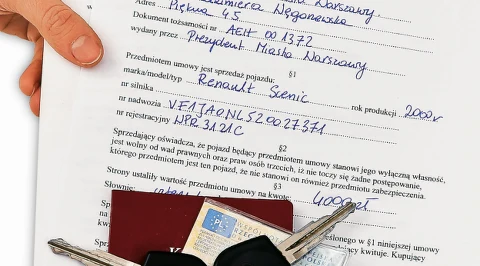 Warszawy.
Adres Kazimiera Węgonewska
Piękna 45
Dokument tożsamości nr AEH 001372
wydany przez Prezydent Miasta Warszawy
§1
Przedmiotem umowy jest sprzedaż pojazdu:
marka/model/typ Renault Scenic rok produkcji 2000r
nr silnika
nr nadwozia VF1JA0NL520027371
nr rejestracyjny WPR 3121C
§2
Sprzedający oświadcza, że pojazd będący przedmiotem umowy stanowi jego wyłączną własność,
jest wolny od wad prawnych oraz praw osób trzecich, iż nie toczy się żadne postępowanie,
którego przedmiotem jest ten pojazd, że nie stanowi on również przedmiotu zabezpieczenia.
§3
Strony ustaliły wartość przedmiotu umowy na kwotę 4000zł
Słownie:
określonego w §1 niniejszej umowy
kwituje. Kupujący
Sprz
PL